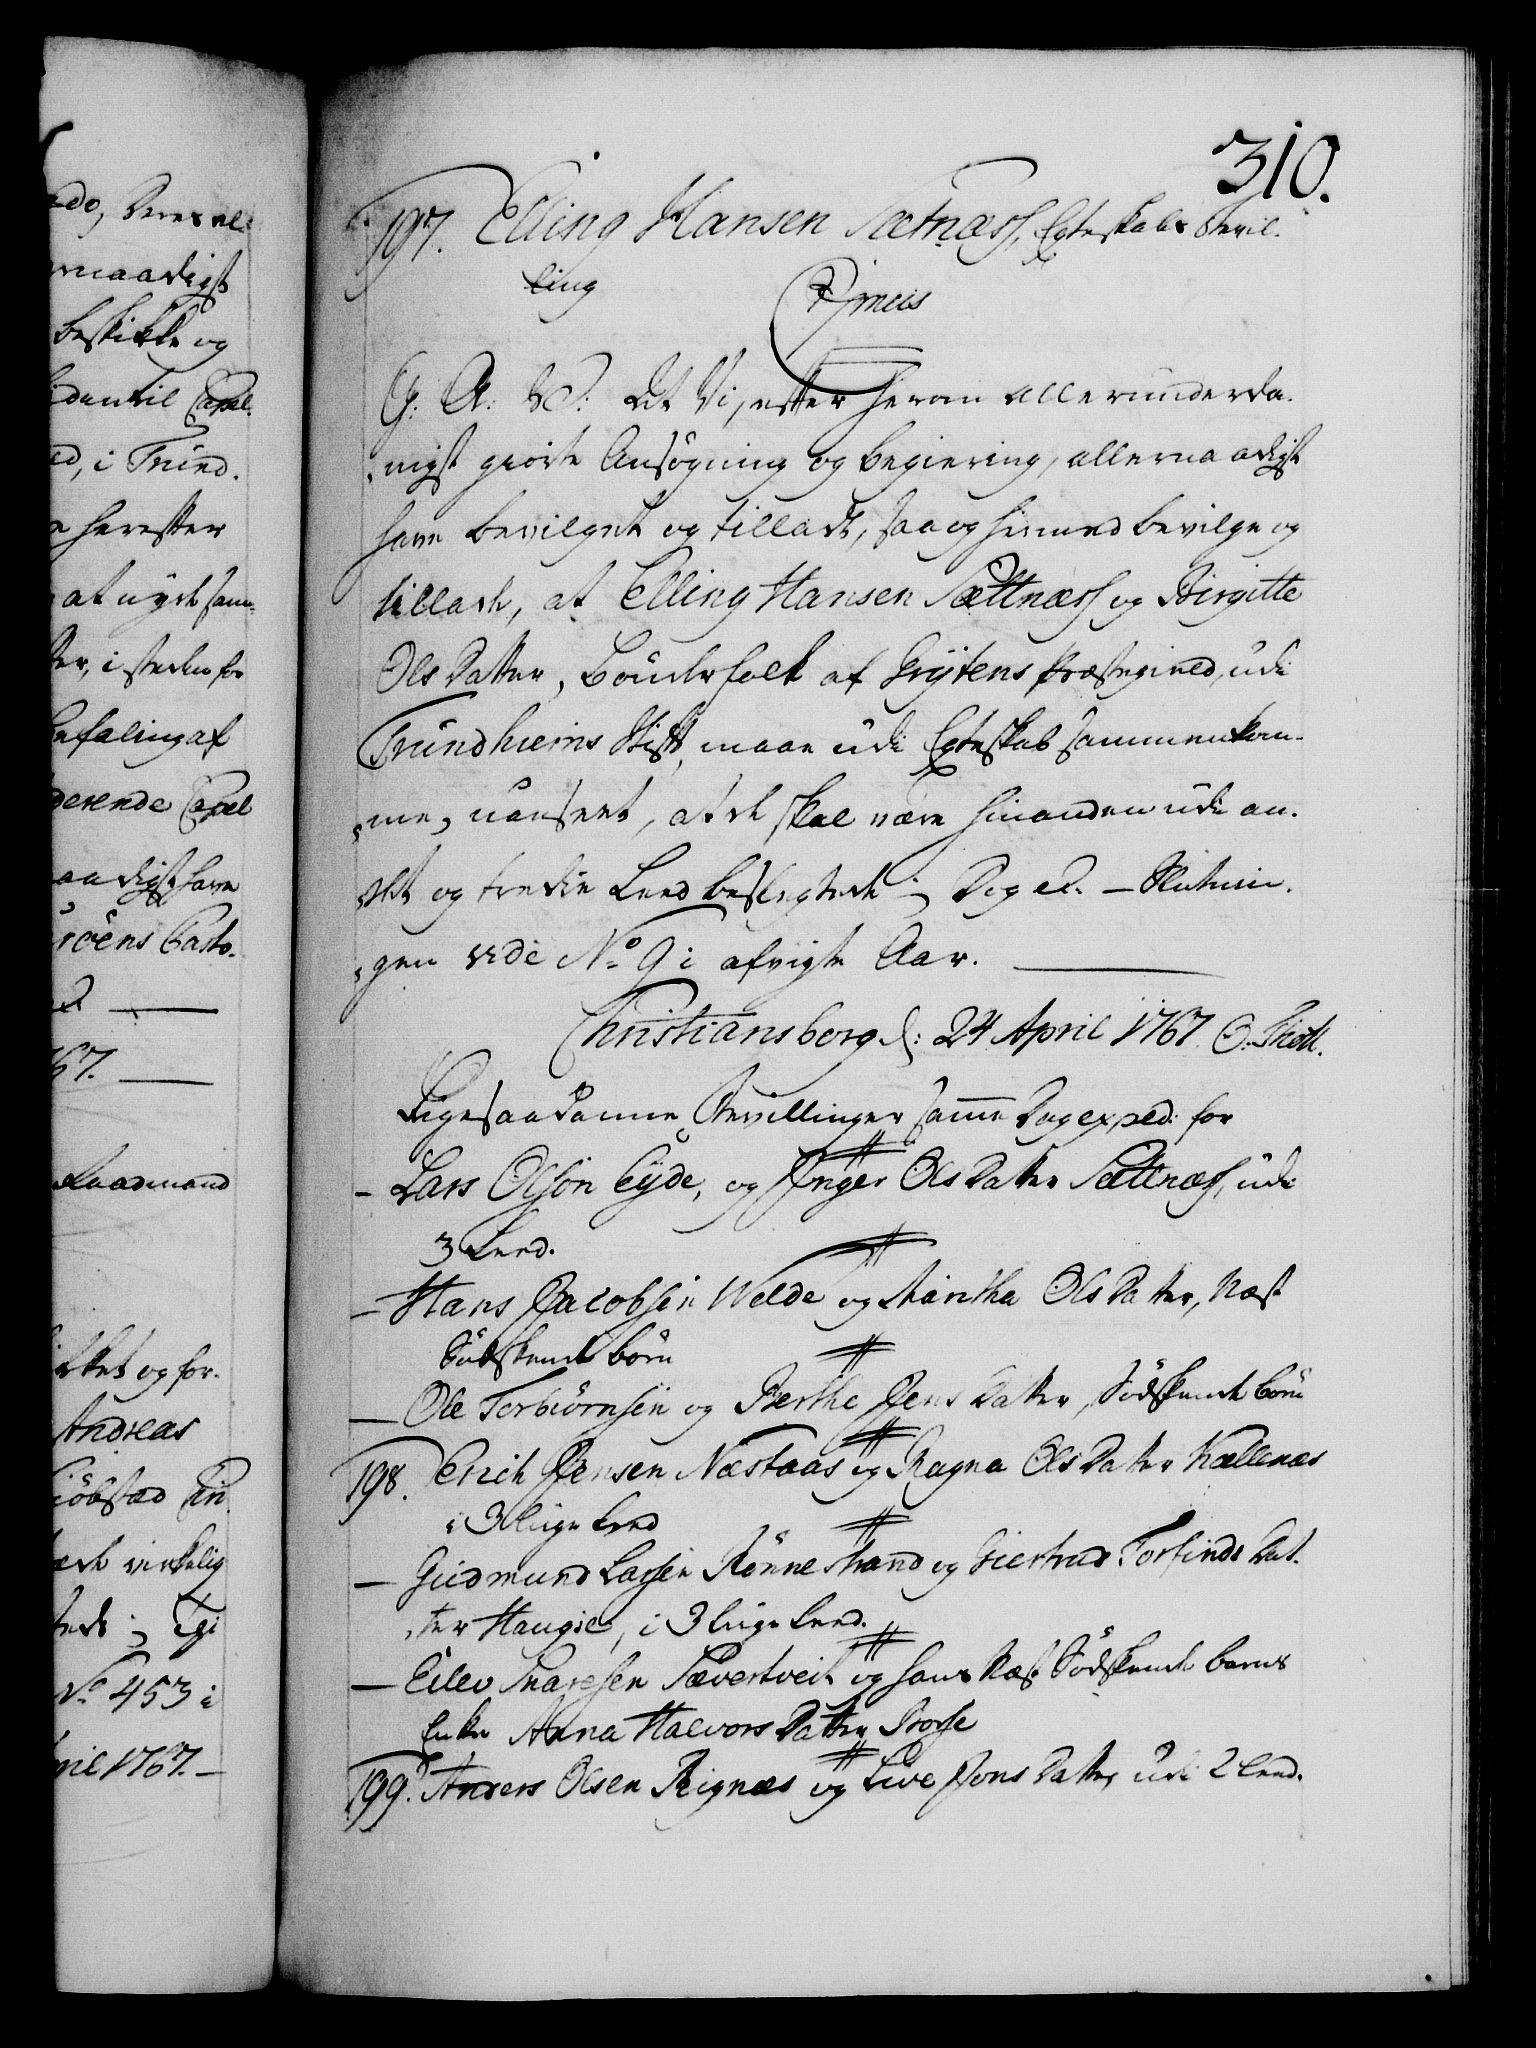 310.
197. Elling Hansen Sætnæss, Egteskabs Bevil-
ling
Gratis
G. A. V. At Vi, efter herom allerunderda-
nigst giorte Ansøgning og Begiering, allernaadigst
have bevilget og tilladt, saa og hermed bevilge og
tillade, at Elling Hansen Sættnæss og Birgitte
Ols Datter, Bønderfolk af Grytens Præstegield, udi
Trundhiems Stift, maae udi Egteskab sammenkom-
me, uanseet, at de skal være hinanden udi an-
det og tredie Leed beslegtede; Dog ed. – Slutnin-
gen vide No 9 i afvigte Aar.
Christiansborg d: 24 April 1767. O. Thott.
Ligesaadanne Bevillinger samme Dag exped: for
– Lars Olsøn Eyde, og Inger Ols Datter Sættnæss, udi
3 Leed.
– Hans Jacobsen Welde og Maritha Ols Datter, Næst
Sødskende børn
– Ole Torbiørnsen og Berthe Jens Datter, Sødskende børn
198. Erich Jensen Næstaas og Ragna Ols Datter Kællenæs
i 3 liige Leed
– Gudmund Larsen Rønnestrand og Giertrud Torfinds Dat-
ter Haugie, i 3 liige Leed.
– Eilev Snaresen Sævertveit og hans Næst Sødskende barns
Enke Anna Halvors Datter Borse
199. Anders Olsen Rignæs og Live Jons Datter udi 2 Leed.
ado, Deres al-
rnaadigst
beskikke og
identil Capel-
ed, i Trund-
e herefter
at nyde sam-
ter, i steden for
befaling af
derende Capel
aadigst have
røens Pasto-
67.
Laadmand
irket og for-
Andreas
iøbstad
virkelig
No 453 i
pril 1767. –